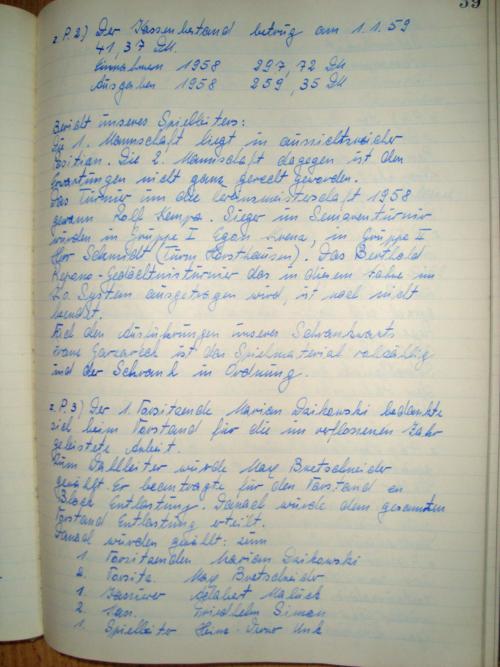 39
z. P. 2) Der Kassenbestand betrug am 1.1.59
41,37 DM.
Einnahmen 1958 297,72 DM
Ausgaben 1958 259,35 DM
Bericht unseres Spielleiters:
Die 1. Mannschaft liegt in aussichtsreicher
Position. Die 2. Mannschaft dagegen ist den
Erwartungen nicht ganz gerecht geworden.
Das Turnier um die Vereinsmeisterschaft 1958
gewann Rolf Kempa. Sieger im Seniorenturnier
wurden in Gruppe I Egon, in Gruppe II
Herr Schmidt (Turm Horsthausen). Das Berthold
-Gedächtnisturnier das in diesem Jahre im
K.o. System ausgetragen wird, ist noch nicht
beendet.
Nach den Ausführungen unseres Schrankwarts
Franz ist das Spielmaterial vollzählig
und der Schrank in Ordnung.
z. P. 3) Der 1. Vorsitzende Marian Dzikowski bedankte
sich beim Vorstand für die im verflossenen Jahr
geleistete Arbeit.
Zum Wahlleiter wurde Max Bretschneider
gewählt. Er beantragte für den Vorstand en
Block Entlastung. Danach wurde dem gesamten
Vorstand Entlastung erteilt.
Danach wurden gewählt: zum
1. Vorsitzenden Marian Dzikowski
2. Vorsitz. Max Bretschneider
1. Kassierer Adalbert
2. Kass. Friedhelm Simon
1. Spielleiter Heinz-Dieter Unk